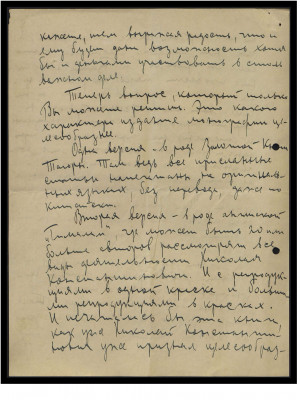 кажете, тем выражая радость, что и
ему будет дана возможность хотя
бы и деньгами участвовать в столь
важном деле.
Теперь вопрос, который только
Вы можете решить. Это какого
характера издание монографии це-
лесообразнее.
Одна версия - в роде Золотой Книги
Тагора. Там ведь все присланные
статьи напечатаны на оригиналь-
ных языках, без перевода, даже по
китайски.
Вторая версия - в роде латинской
где может быть 20 или
больше авторов рассмотрят все
виды деятельности Николая
Константиновича. И с репродук-
циями в одной краске и больши-
ми репродукциями в красках.
И печаталась бы эта книга
как уже Николай Константи-
нович уже признал целесообраз-